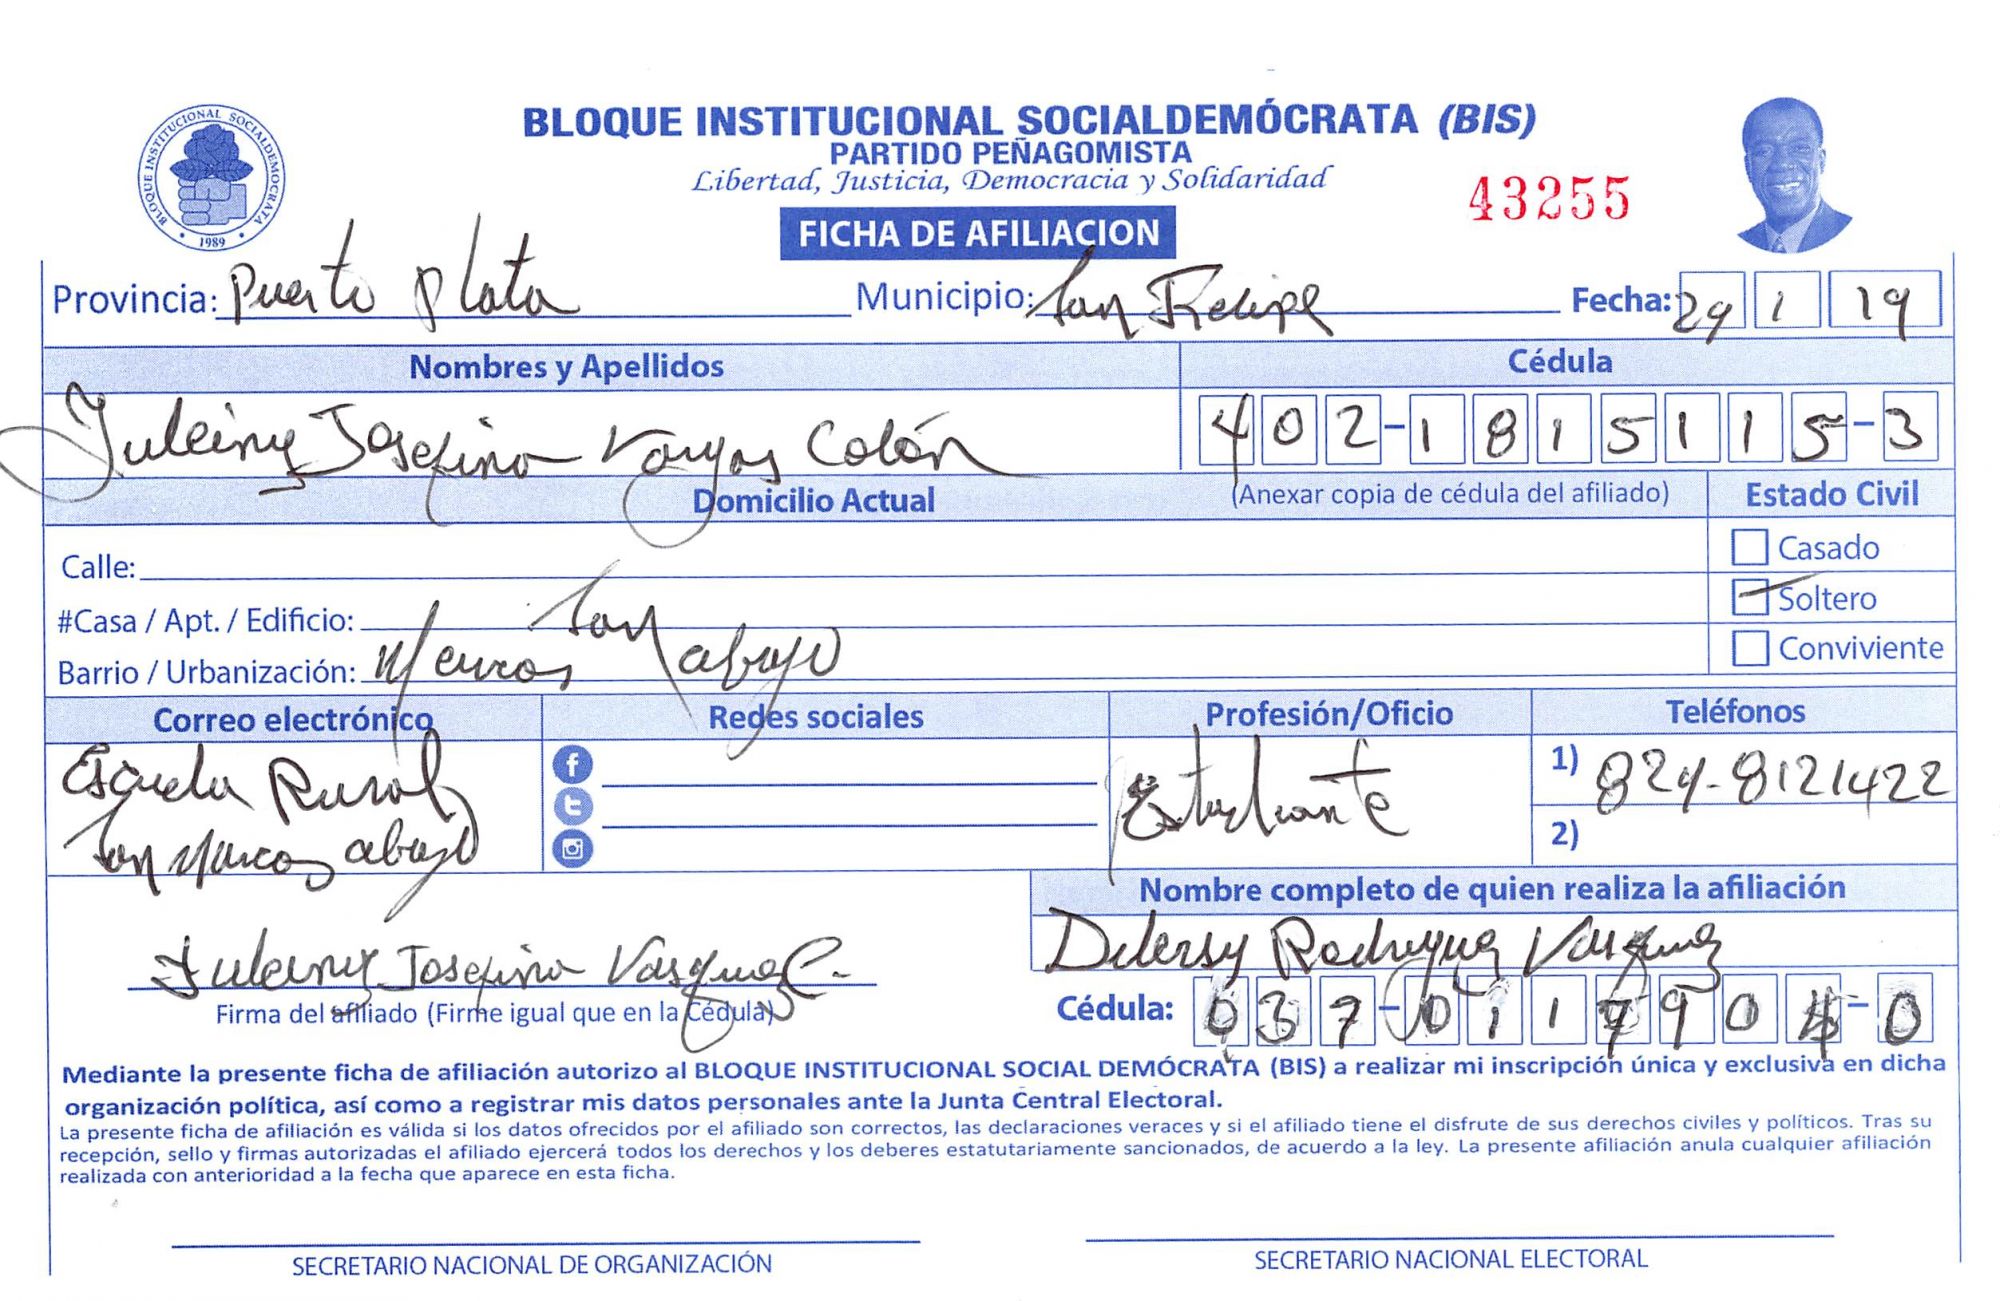 BLOQUE INSTITUCIONAL SOCIALDEMÓCRATA (BIS)
PARTIDO PEÑAGOMISTA
Libertad, Justicia, Democracia y Solidaridad
43255
BLOQUE INSTITUCIONAL SOCIALDEMOCRATA
1989
FICHA DE AFILIACION
Provincia: Puerto Plata Municipio: San Felipe Fecha: 29 1 19
Nombres y Apellidos Cédula
Juleiny Josefina Vargas Colón 402-1815115-3
Domicilio Actual (Anexar copia de cédula del afiliado) Estado Civil
Calle: Casado
#Casa / Apt. / Edificio: San Soltero
Barrio / Urbanización: Marcos abajo Conviviente
Correo electrónico Redes sociales Profesión/Oficio Teléfonos
Escuela Rural Estudiante 1) 829-8121422
San Marcos abajo 2)
Nombre completo de quien realiza la afiliación
Rodriguez Vasquez
Juleiny Josefina Vasquez C.
Firma del afiliado (Firme igual que en la Cédula) Cédula: 037-011790
Mediante la presente ficha de afiliación autorizo al BLOQUE INSTITUCIONAL SOCIAL DEMÓCRATA (BIS) a realizar mi inscripción única y exclusiva en dicha
organización política, así como a registrar mis datos personales ante la Junta Central Electoral.
La presente ficha de afiliación es válida si los datos ofrecidos por el afiliado son correctos, las declaraciones veraces y si el afiliado tiene el disfrute de sus derechos civiles y políticos. Tras su
recepción, sello y firmas autorizadas el afiliado ejercerá todos los derechos y los deberes estatutariamente sancionados, de acuerdo a la ley. La presente afiliación anula cualquier afiliación
realizada con anterioridad a la fecha que aparece en esta ficha.
SECRETARIO NACIONAL DE ORGANIZACIÓN SECRETARIO NACIONAL ELECTORAL